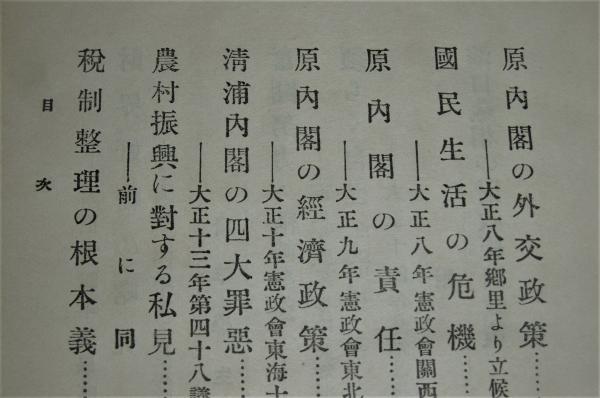 原內閣の外交政策……
――大正八年鄕里より立候
國民生活の危機……
――大正八年憲政會關西
原內閣の責任……
――大正九年憲政會東北
原內閣の經濟政策……
――大正十年憲政會東海十
淸浦內閣の四大罪惡……
――大正十三年第四十八議
農村振興に對する私見……
――前に同
稅制整理の根本義……
目次